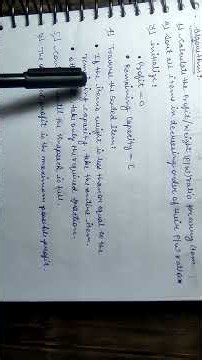 1) Calculate the Profit/weight P/W ratio for every item
2) Sort all items in decreasing order of their P/W ratio
3) Initialize
• Profit = 0
• Remaining Capacity = C
4) Traverse the sorted items
• If the items weight is less than or equal to the
capacity, take the entire item.
take only required fraction.
the knapsack is full.
profit is the maximum possible profit.